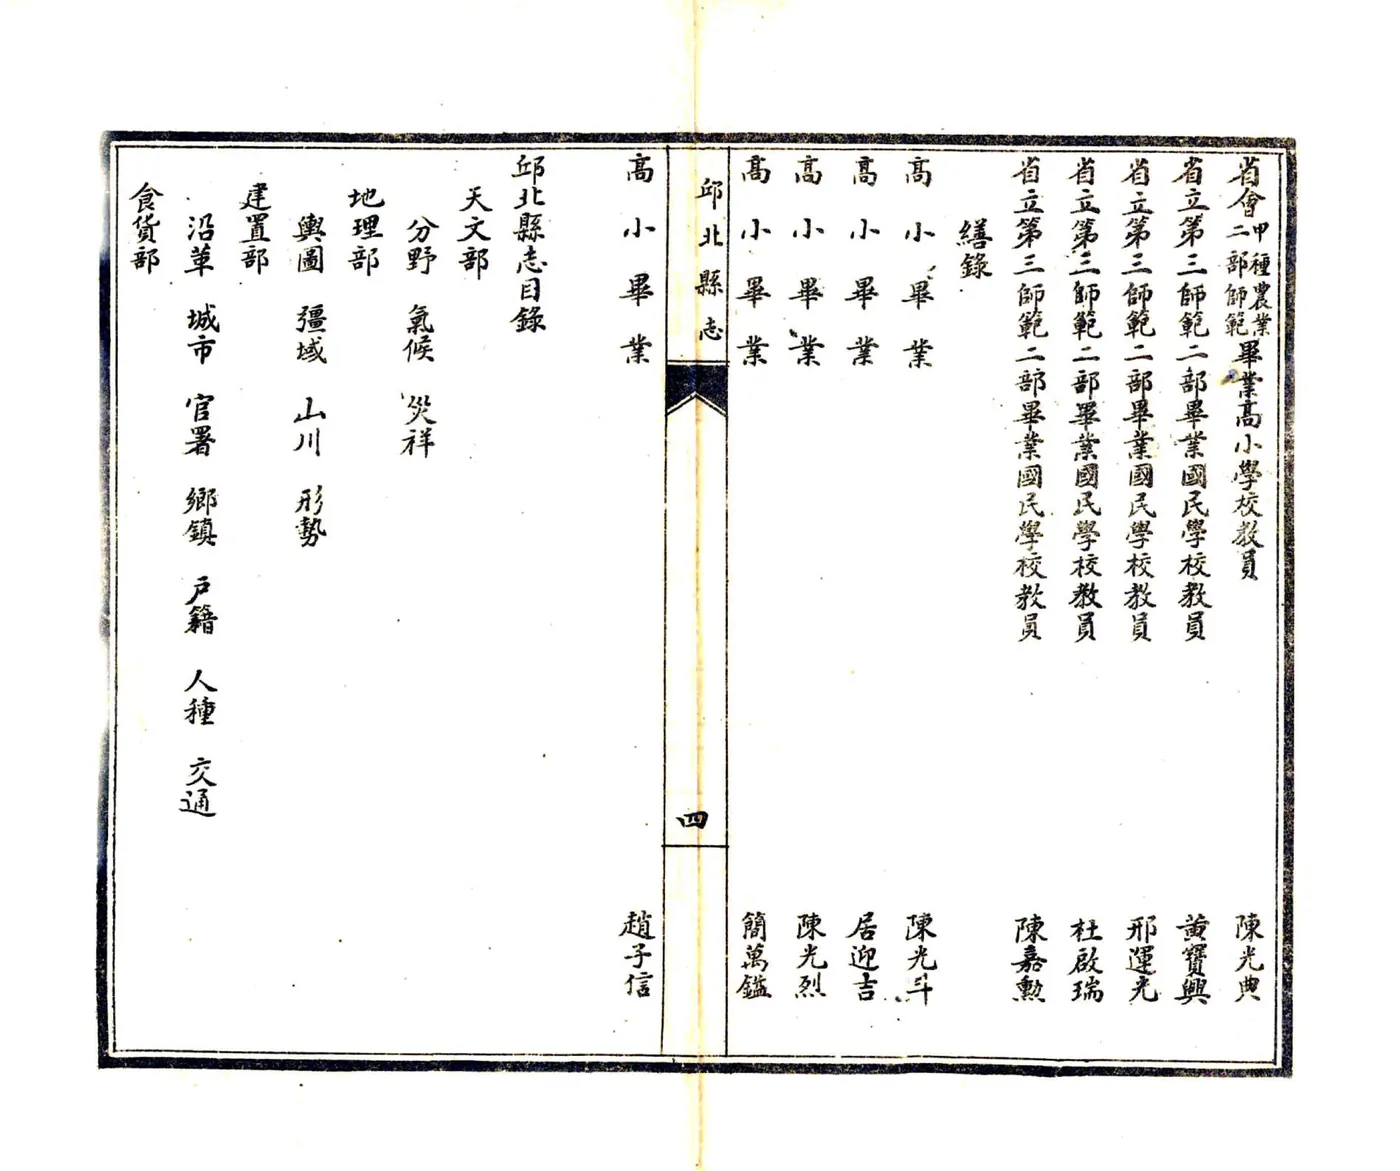 省會甲種農業二部師範畢業高小學校教員 陳光典
省立第三師範二部畢業國民學校教員 黄寶興
省立第三師範二部畢業國民學校教員 邢運光
省立第三師範二部畢業國民學校教員 杜啟瑞
省立第三師範二部畢業國民學校教員 陳嘉勳
繕錄
高小畢業 陳光斗
高小畢業 居迎吉
高小畢業 陳光烈
高小畢業 簡萬鎰
邱北縣志 四
高小畢業 趙子信
邱北縣志目錄
天文部
分野 氣候 災祥
地理部
輿圖 彊域 山川 形勢
建置部
沿革 城市 官署 鄉鎮 戶籍 人種 交通
食貨部